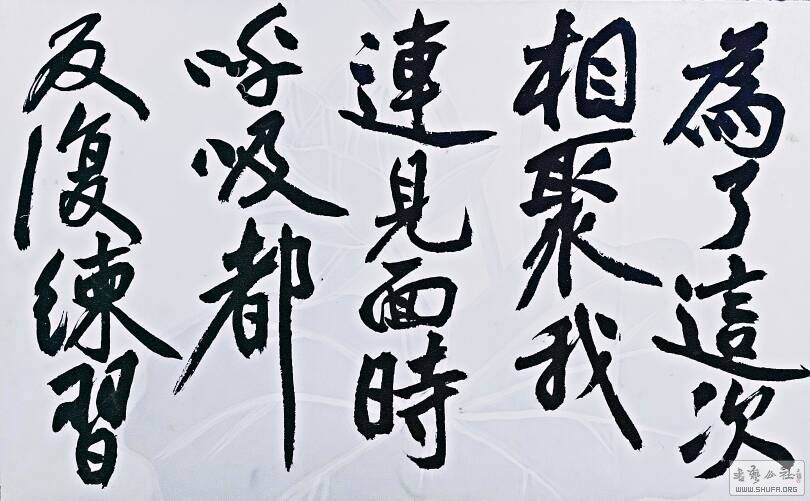 為了這次
相聚我
連見面時
呼吸都
反復練習
WWW.SHUFA.ORG